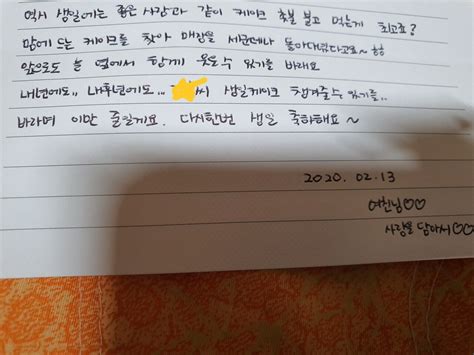 역시 생일에는 좋은 사람과 같이 케이크 촛불 불고 먹는게 최고죠?
맘에 드는 케이크를 찾아 매장을 세군데나 돌아다녔다고요~ ㅎㅎ
앞으로도 늘 옆에서 함께 웃을수 있기를 바래요
내년에도,, 내후년에도... 씨 생일케이크 챙겨줄수 있기를..
바라며 이만 줄일게요. 다시한번 생일 축하해요~
2020. 02. 13
여친님♡♡
사랑을 담아서♡♡